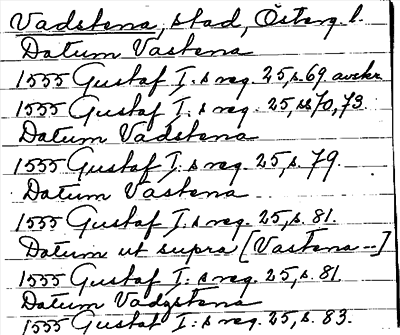 Vadstena, stad, Österg. l.
Datum Vastena
1555 Gustaf I:s reg. 25, s. 69 avskr.
1555 Gustaf I:s reg. 25, ss 70, 73.
Datum Vadstena
1555 Gustaf I:s reg. 25, s. 79.
Datum Vastena
1555 Gustaf I:s reg. 25, s. 81.
Datum ut supra [Vastena --]
1555 Gustaf I:s reg. 25, s. 81
Datum Vadzstena
1555 Gustaf I:s reg. 25, s. 83.